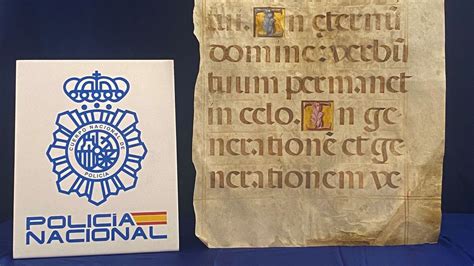 CUERPO NACIONAL DE
POLICÍA
POLICÍA
NACIONAL
In eternū
domine: verbū
tuum permanet
in celo. In ge
neratione et ge
nerationem ve